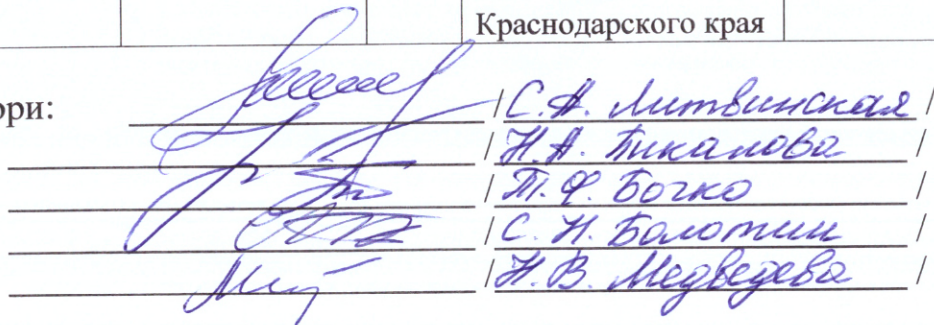 Краснодарского края
ори:
/ С.А. Литвинская /
/ Н.А. Пикалова /
/ Т.Ф. Бочко /
/ С.Н. Болотин /
/ Н.В. Медведева /